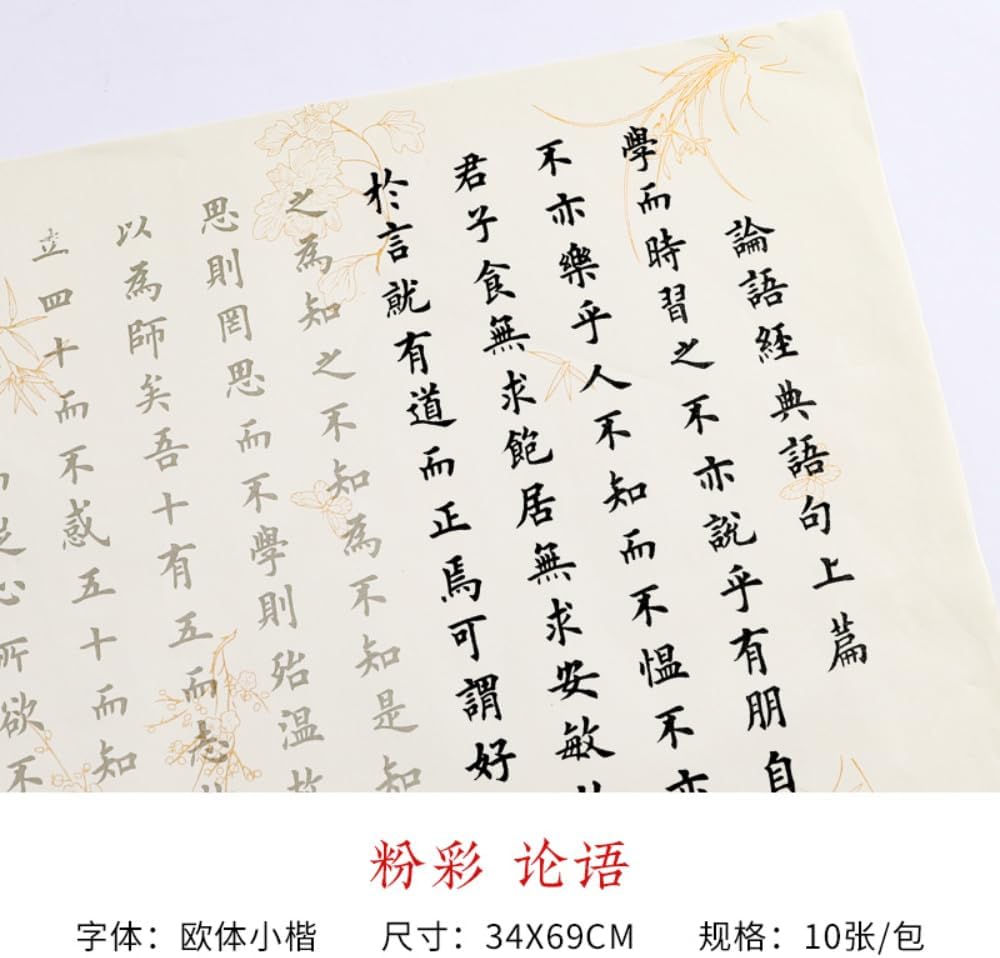 論語經典語句上篇
學而時習之不亦說乎有朋自
不亦樂乎人不知而不慍不亦
君子食無求飽居無求安敏
於言就有道而正焉可謂好
之為知之不知為不知是知
思則罔思而不學則殆温故
以為師矣吾十有五而志
立四十而不惑五十而知
心所欲不
粉彩 论语
字体：欧体小楷 尺寸：34X69CM 规格：10张/包